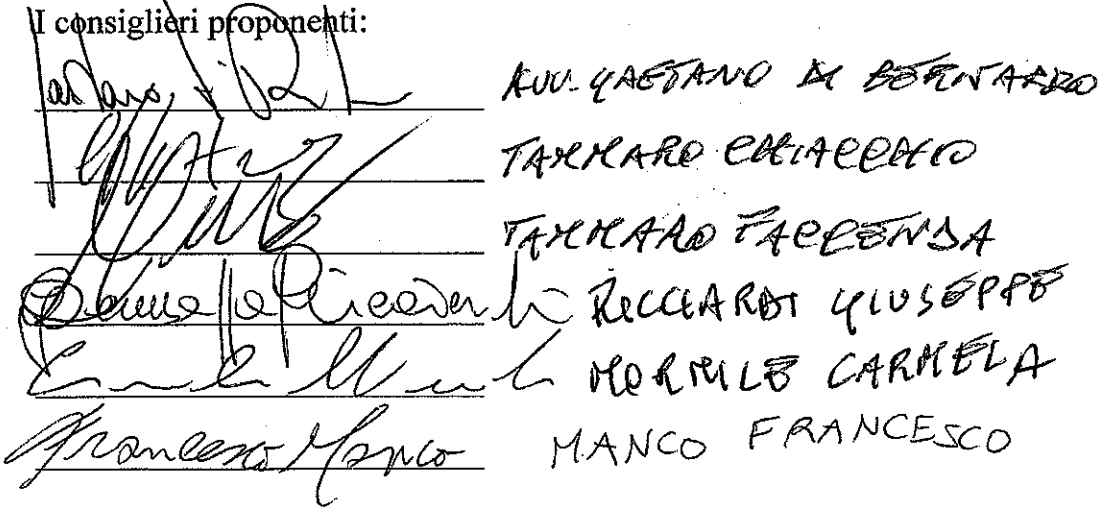 I consiglieri proponenti:
AVV. GAETANO DI BERNARDO
TAMMARO CHIACCHIO
TAMMARO FACCENDA
RICCIARDI GIUSEPPE
MORMILE CARMELA
Francesco Manco MANCO FRANCESCO